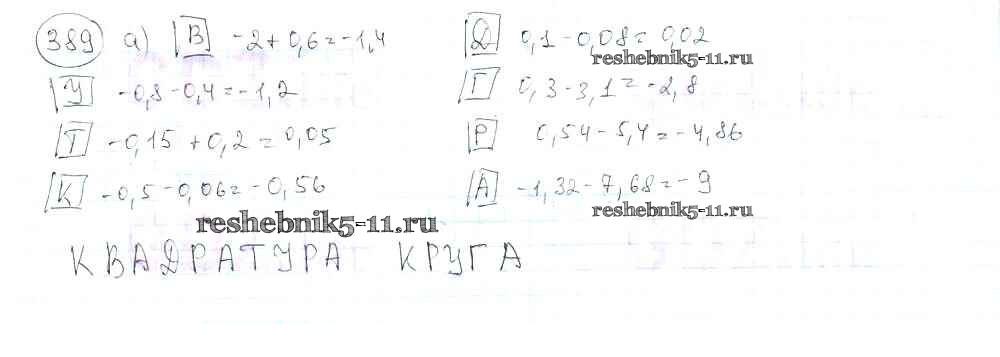 389 а) В -2 + 0,6 = -1,4
У -0,8 - 0,4 = -1,2
Т -0,15 + 0,2 = 0,05
К -0,5 - 0,06 = -0,56
Д 0,1 - 0,08 = 0,02
reshebnik5-11.ru
Г 0,3 - 3,1 = -2,8
Р 0,54 - 5,4 = -4,86
А -1,32 - 7,68 = -9
reshebnik5-11.ru
reshebnik5-11.ru
КВАДРАТУРА КРУГА